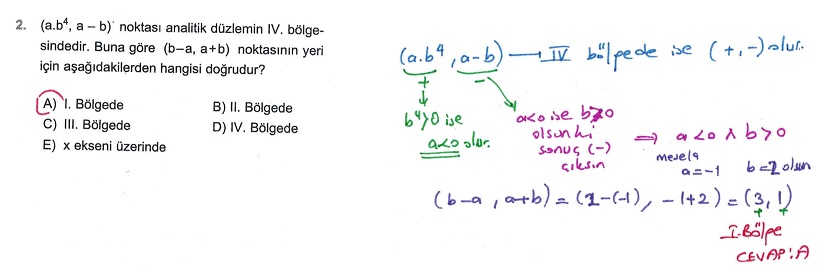 2. (a.b⁴, a – b) noktası analitik düzlemin IV. bölge-
sindedir. Buna göre (b–a, a+b) noktasının yeri
için aşağıdakilerden hangisi doğrudur?
A) I. Bölgede
B) II. Bölgede
C) III. Bölgede
D) IV. Bölgede
E) x ekseni üzerinde
(a.b⁴, a-b) → IV bölgede ise (+,-) olur.
+ -
b⁴>0 ise
a<0 olur.
a<0 ise b>0
olsun ki
sonuç (-)
çıksın
⇒ a<0 ∧ b>0
mesela
a=-1 b=2 olsun
(b-a, a+b) = (2-(-1), -1+2) = (3,1)
+ +
I. Bölge
CEVAP: A